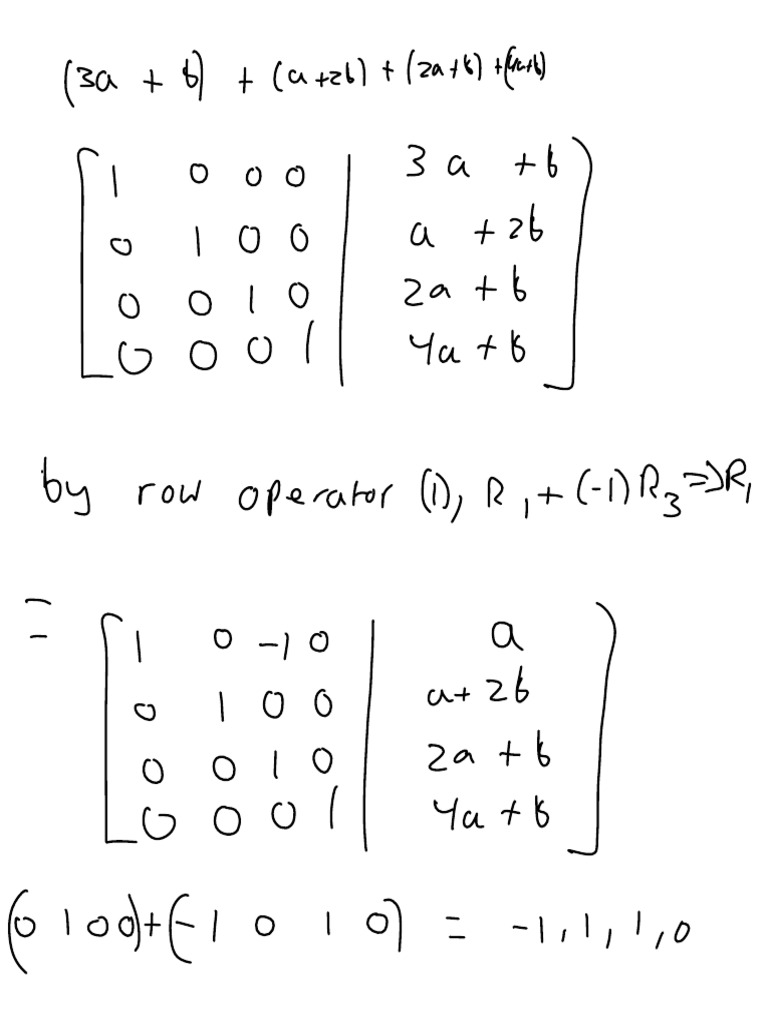 (3a + b) + (a+2b) + (2a+b) + (4a+b)
1 0 0 0 | 3a + b
0 1 0 0 | a + 2b
0 0 1 0 | 2a + b
0 0 0 1 | 4a + b
by row operator (1), R₁ + (-1) R₃ ⇒ R₁
=
1 0 -1 0 | a
0 1 0 0 | a + 2b
0 0 1 0 | 2a + b
0 0 0 1 | 4a + b
(0 1 0 0) + (-1 0 1 0) = -1, 1, 1, 0